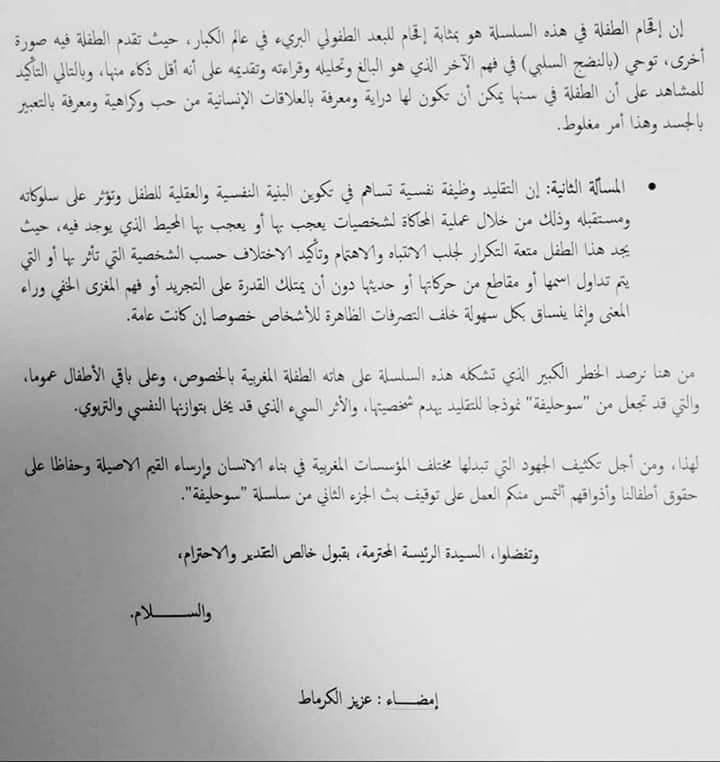 إن إقحام الطفلة في هذه السلسلة هو بمثابة إقحام للبعد الطفولي البريء في عالم الكبار، حيث تقدم الطفلة فيه صورة
أخرى، توحي (بالنضج السلبي) في فهم الآخر الذي هو البالغ وتحليله وقراءته وتقديمه على أنه أقل ذكاء منها، وبالتالي التأكيد
للمشاهد على أن الطفلة في سنها يمكن أن تكون لها دراية ومعرفة بالعلاقات الإنسانية من حب وكراهية ومعرفة بالتعبير
بالجسد وهذا أمر مغلوط.
• المسألة الثانية: إن التقليد وظيفة نفسية تساهم في تكوين البنية النفسية والعقلية للطفل وتؤثر على سلوكاته
ومستقبله وذلك من خلال عملية المحاكاة لشخصيات يعجب بها أو يعجب بها المحيط الذي يوجد فيه، حيث
يجد هذا الطفل متعة التكرار لجلب الانتباه والاهتمام وتأكيد الاختلاف حسب الشخصية التي تأثر بها أو التي
يتم تداول اسمها أو مقاطع من حركاتها أو حديثها دون أن يمتلك القدرة على التجريد أو فهم المغزى الخفي وراء
المعنى وإنما ينساق بكل سهولة خلف التصرفات الظاهرة للأشخاص خصوصا إن كانت عامة.
من هنا نرصد الخطر الكبير الذي تشكله هذه السلسلة على هاته الطفلة المغربية بالخصوص، وعلى باقي الأطفال عموما،
والتي قد تجعل من "سوحليفة" نموذجا للتقليد يهدم شخصيتها، والأثر السيء الذي قد يخل بتوازنها النفسي والتربوي.
لهذا، ومن أجل تكثيف الجهود التي تبدلها مختلف المؤسسات المغربية في بناء الانسان وإرساء القيم الاصيلة وحفاظا على
حقوق أطفالنا وأذواقهم ألتمس منكم العمل على توقيف بث الجزء الثاني من سلسلة "سوحليفة".
وتفضلوا، السيدة الرئيسة المحترمة، بقبول خالص التقدير والاحترام،
والســـــلام.
إمضـــاء : عزيز الكرماط